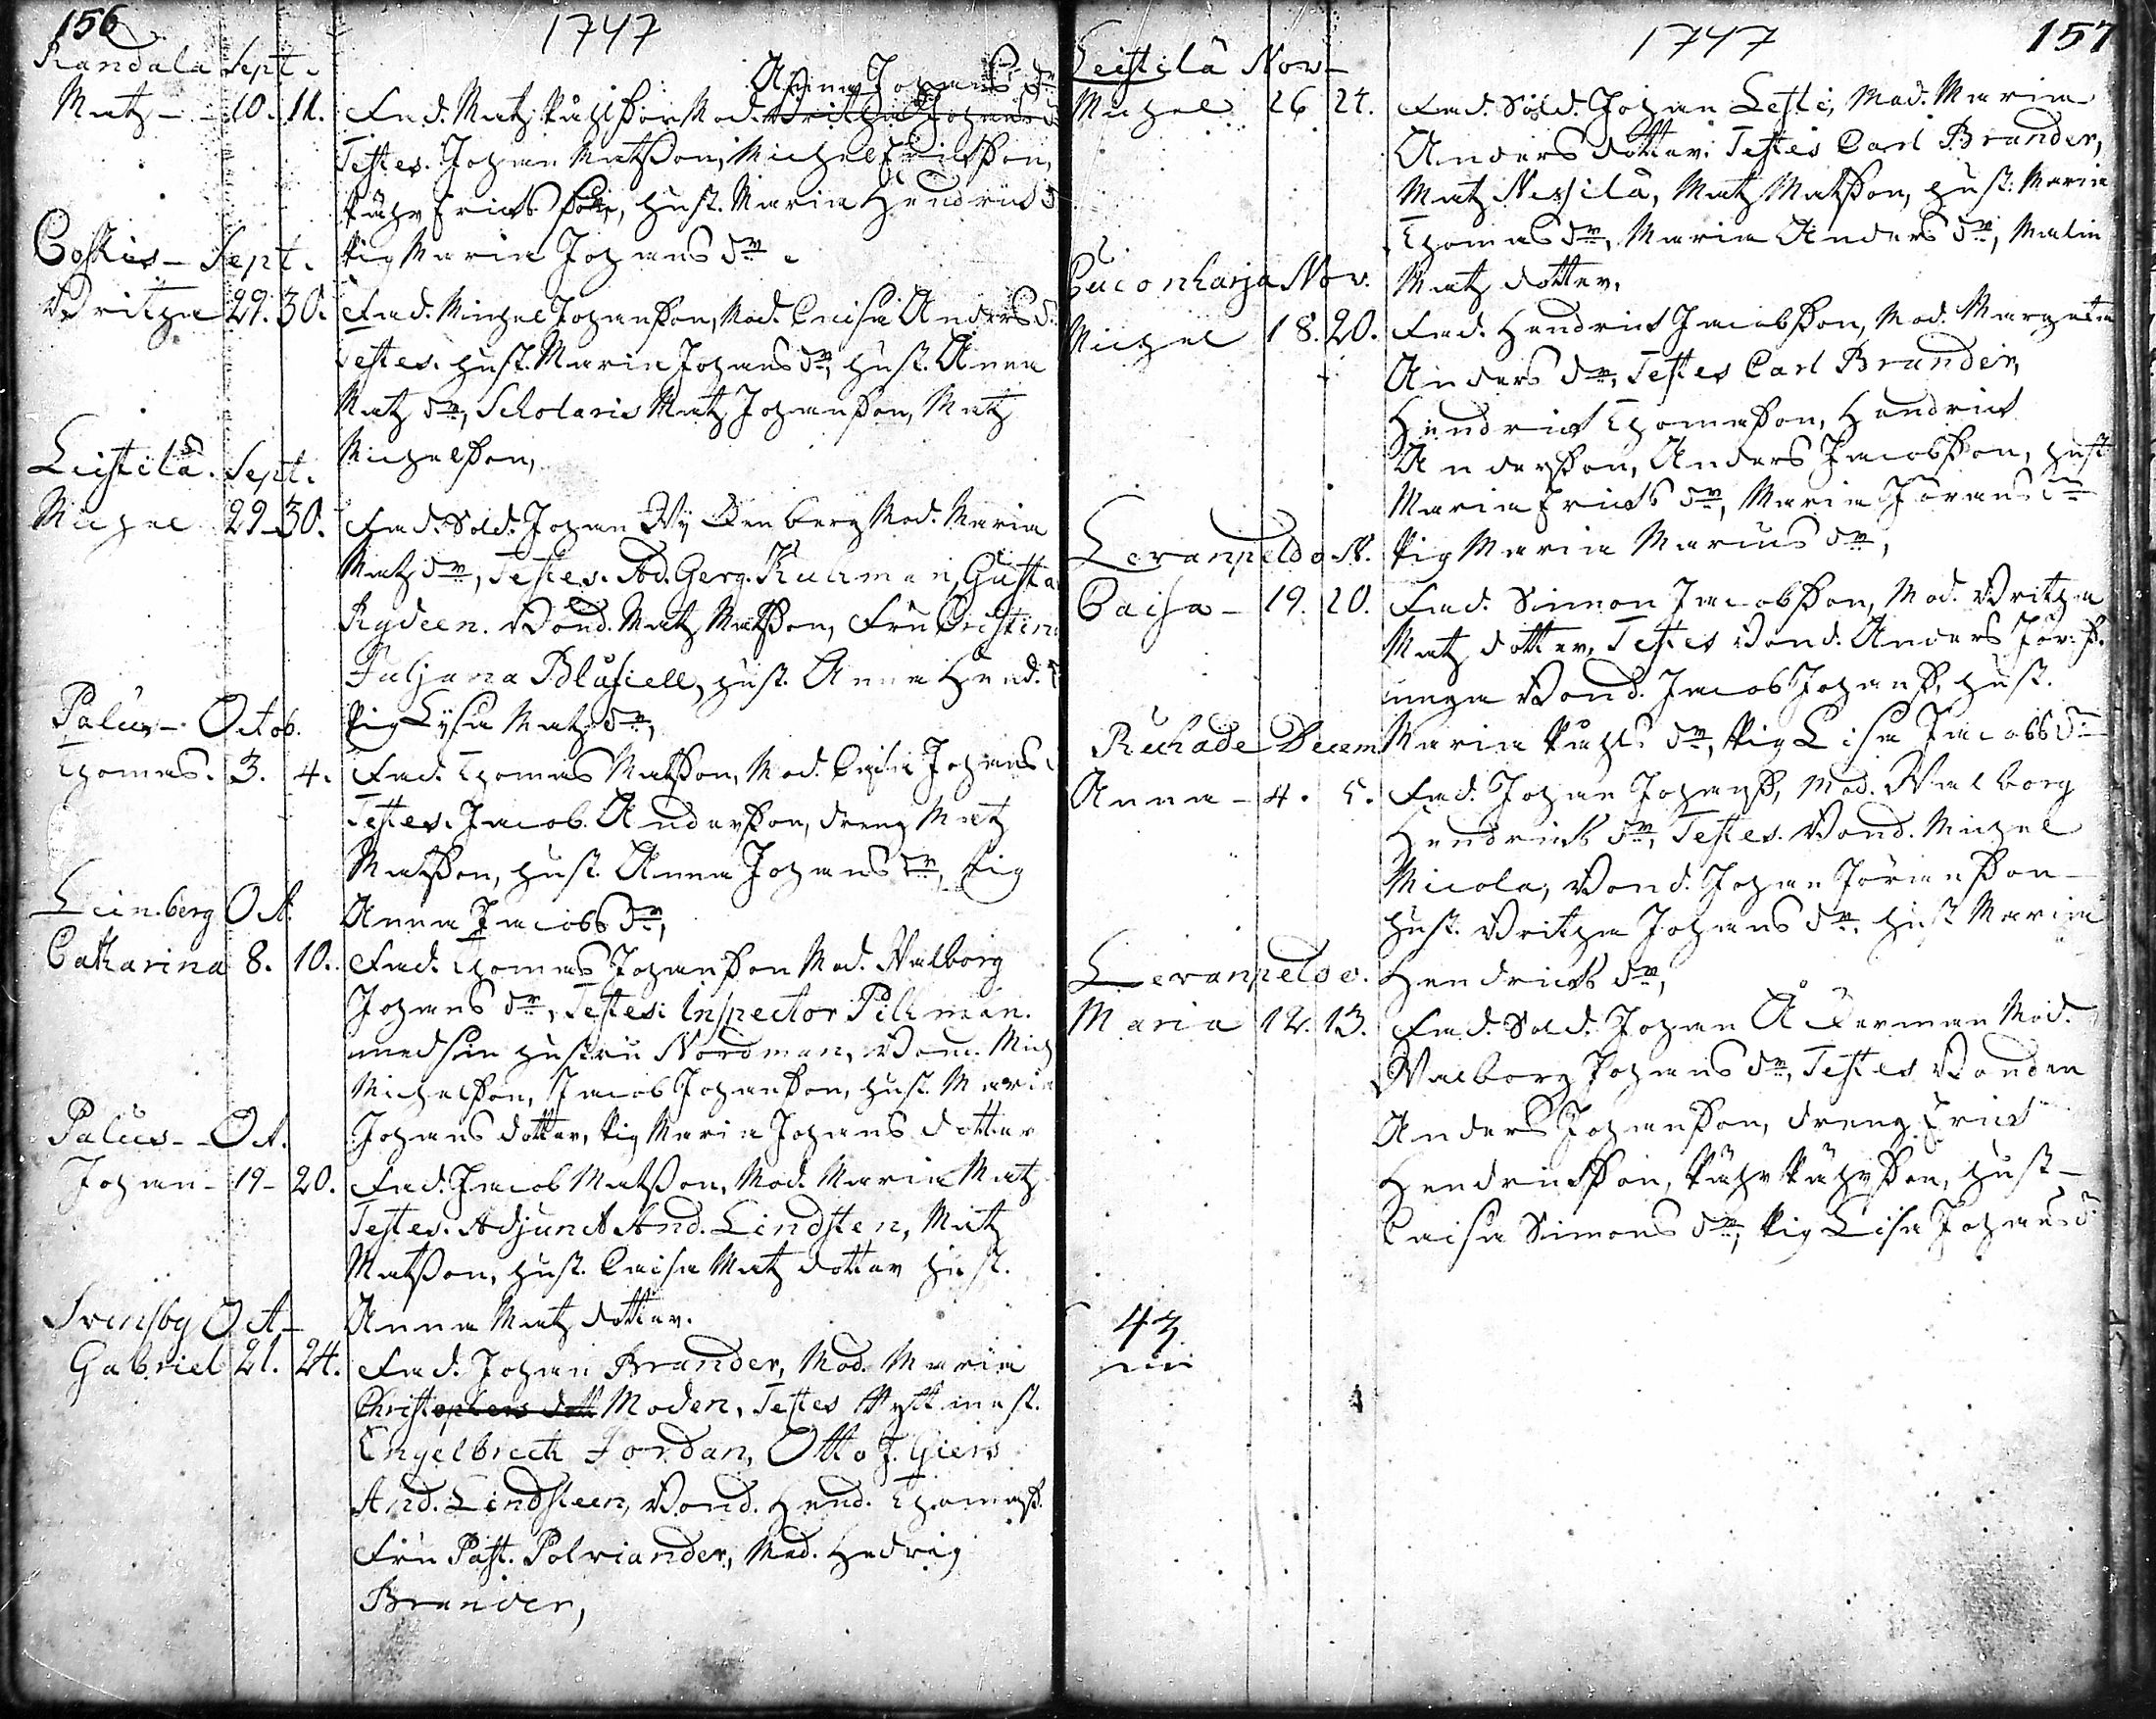 156
1747
Randala Sept.
Anna Johans dr
Matz - - 10. 11. Fad. Matz Påhlsson Mod. Britha Johans d
Testes. Johan Matsson, Michel Ericksson,
Påhr Ericks son, hust. Maria Hendricks d
Pig Maria Johans dr.
Coskis - Sept.
Britha 29. 30. Fad. Michel Johansson, Mod. Caisa Anders d.
Testes. hust. Maria Johans dr, hust. Anna
Matz dr, Scholaris Matz Johansson, Matz
Michelsson,
Leistilä. Sept.
Michel 29 30. Fad. Sold. Johan Wykenberg Mod. Maria
Matz dr, Testes. Ad. Gerg. Kuhman, Gusta
Rydeen. Bond. Matz Matsson, Fru Christina
Juljana Blåfiell, hust. Anna Hend. d
Pig Lysa Matz dr,
Palus - Octob.
Thomas. 3. 4. Fad. Thomas Matsson, Mod. Caisa Johans
Testes. Jacob Andersson, dreng Matz
Matsson, hust. Anna Johans dr, Pig
Anna Jacobs dr,
Leinberg Oct.
Catharina 8. 10. Fad. Thomas Johansson Mod. Walborg
Johans dr, Testes: Inspector Pillman.
med sin hustru Nordman, Bond. Mich
Michelsson, Jacob Johansson, hust. Maria
Johans dotter, Pig Maria Johans dotter
Palus - - Oct.
Johan - 19 - 20. Fad. Jacob Matsson, Mod. Maria Matz
Testes. Adjunct And. Lindsten, Matz
Matsson, hust. Caisa Matz dotter hust.
Anna Matz dotter.
Svensby Oct -
Gabriel 21. 24. Fad. Johan Brander, Mod. Maria
Christophers dott Moden, Testes Ryttmest.
Engelbrecht Jordan, Otto J. Giers
And. Lindsteen, Bond. Hend. Thomass.
Fru Past. Polviander, Mad. Hedvig
Brander,
1747
157
Leistilä Nov -
Michel 26 27. Fad. Sold. Johan Leste, Mod. Maria
Anders dotter. Testes Carl Brander,
Matz Nessilä, Matz Matsson, hust. Maria
Thomas dr, Maria Anders dr, Malin
Matz dotter,
Cuconharja Nov.
Michel 18. 20. Fad. Hendrick Jacobsson, Mod. Margeta
Anders dr, Testes Carl Brander,
Hendrick Thomasson, Hendrick
Andersson, Anders Jacobsson, hust
Maria Ericks dr, Maria Jörans dr
Pig Maria Marcus dr,
Levanpeldo N.
Caisa - 19. 20. Fad. Simon Jacobsson, Mod. Britha
Matz dotter, Testes Bond. Anders Jör. s.
unga Bond. Jacob Johans s, hust.
Maria Påhls dr, Pig Lisa Jacobs dr
Ruhade Decem
Anna - 4. 5. Fad. Johan Johanss, Mod. Walborg
Hendricks dr, Testes. Bond. Michel
Micola, Bond. Johan Jöransson -
hust. Britha Johans dr, hust Maria
Hendricks dr,
Levanpeldo.
Maria 12. 13. Fad. Sold. Johan Åkerman Mod.
Walborg Johans dr, Testes Bonden
Anders Johansson, dreng Erick
Hendricksson, Påhr Påhrsson, hust -
Caisa Simons dr, Pig Lisa Johans d
43